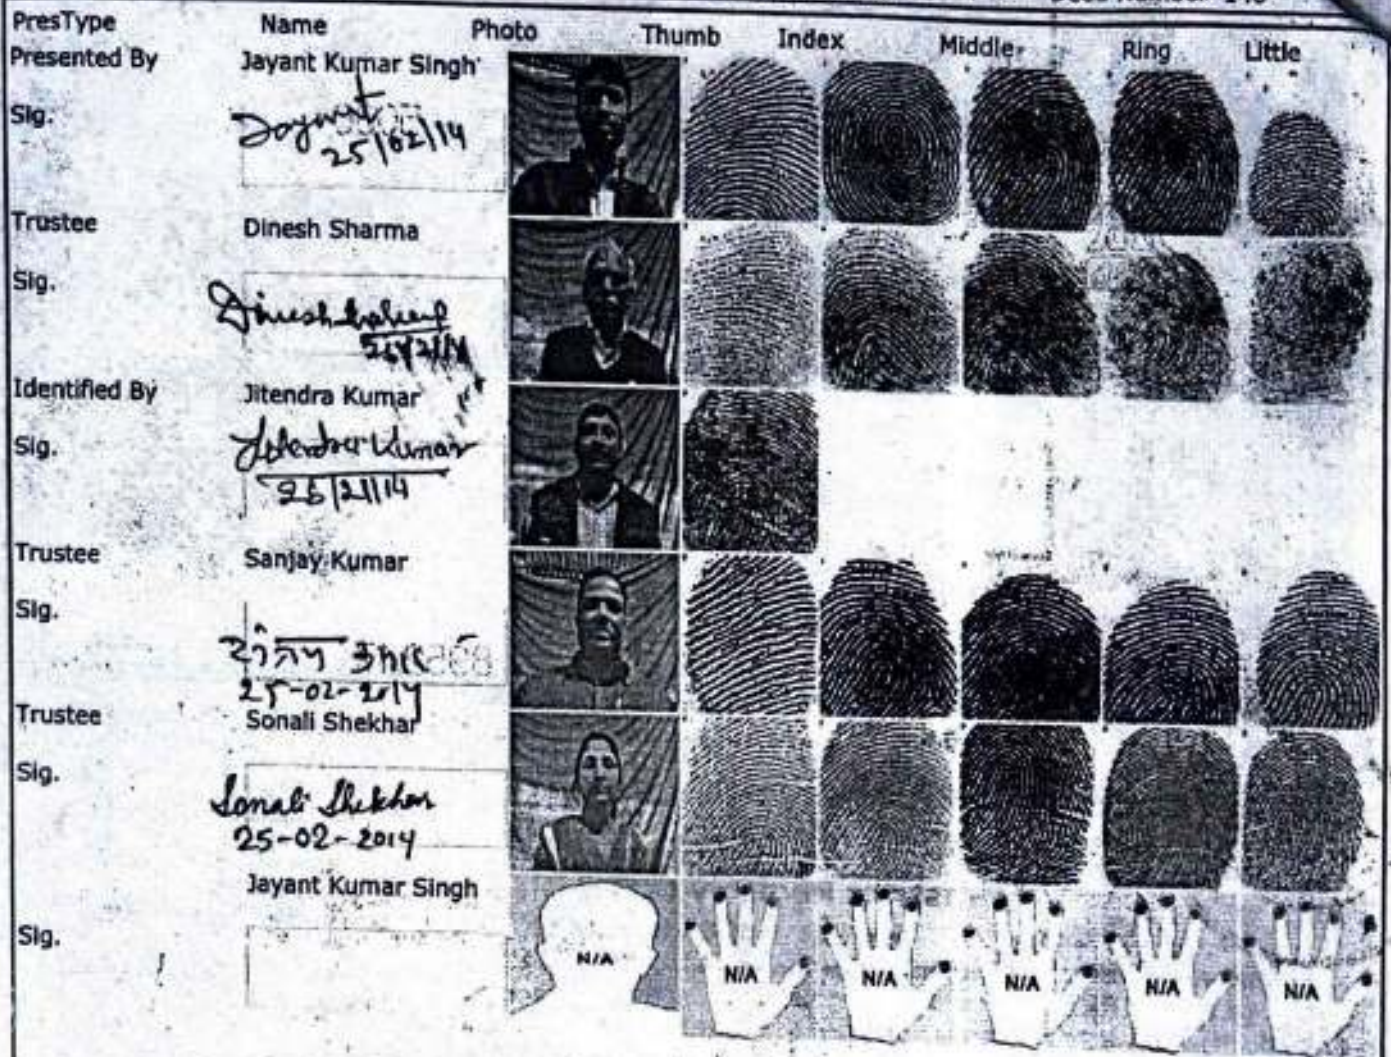 PresType Name Photo Thumb Index Middle Ring Little
Presented By Jayant Kumar Singh
Sig.
25/02/14
Trustee Dinesh Sharma
Sig. Dinesh
Identified By Jitendra Kumar
Sig. Jitendra Kumar
Trustee Sanjay Kumar
Sig.
25-02-2014
Trustee Sonali Shekhar
Sig. Sonali Shekhar
25-02-2014
Jayant Kumar Singh
Sig.
N/A N/A N/A N/A N/A N/A